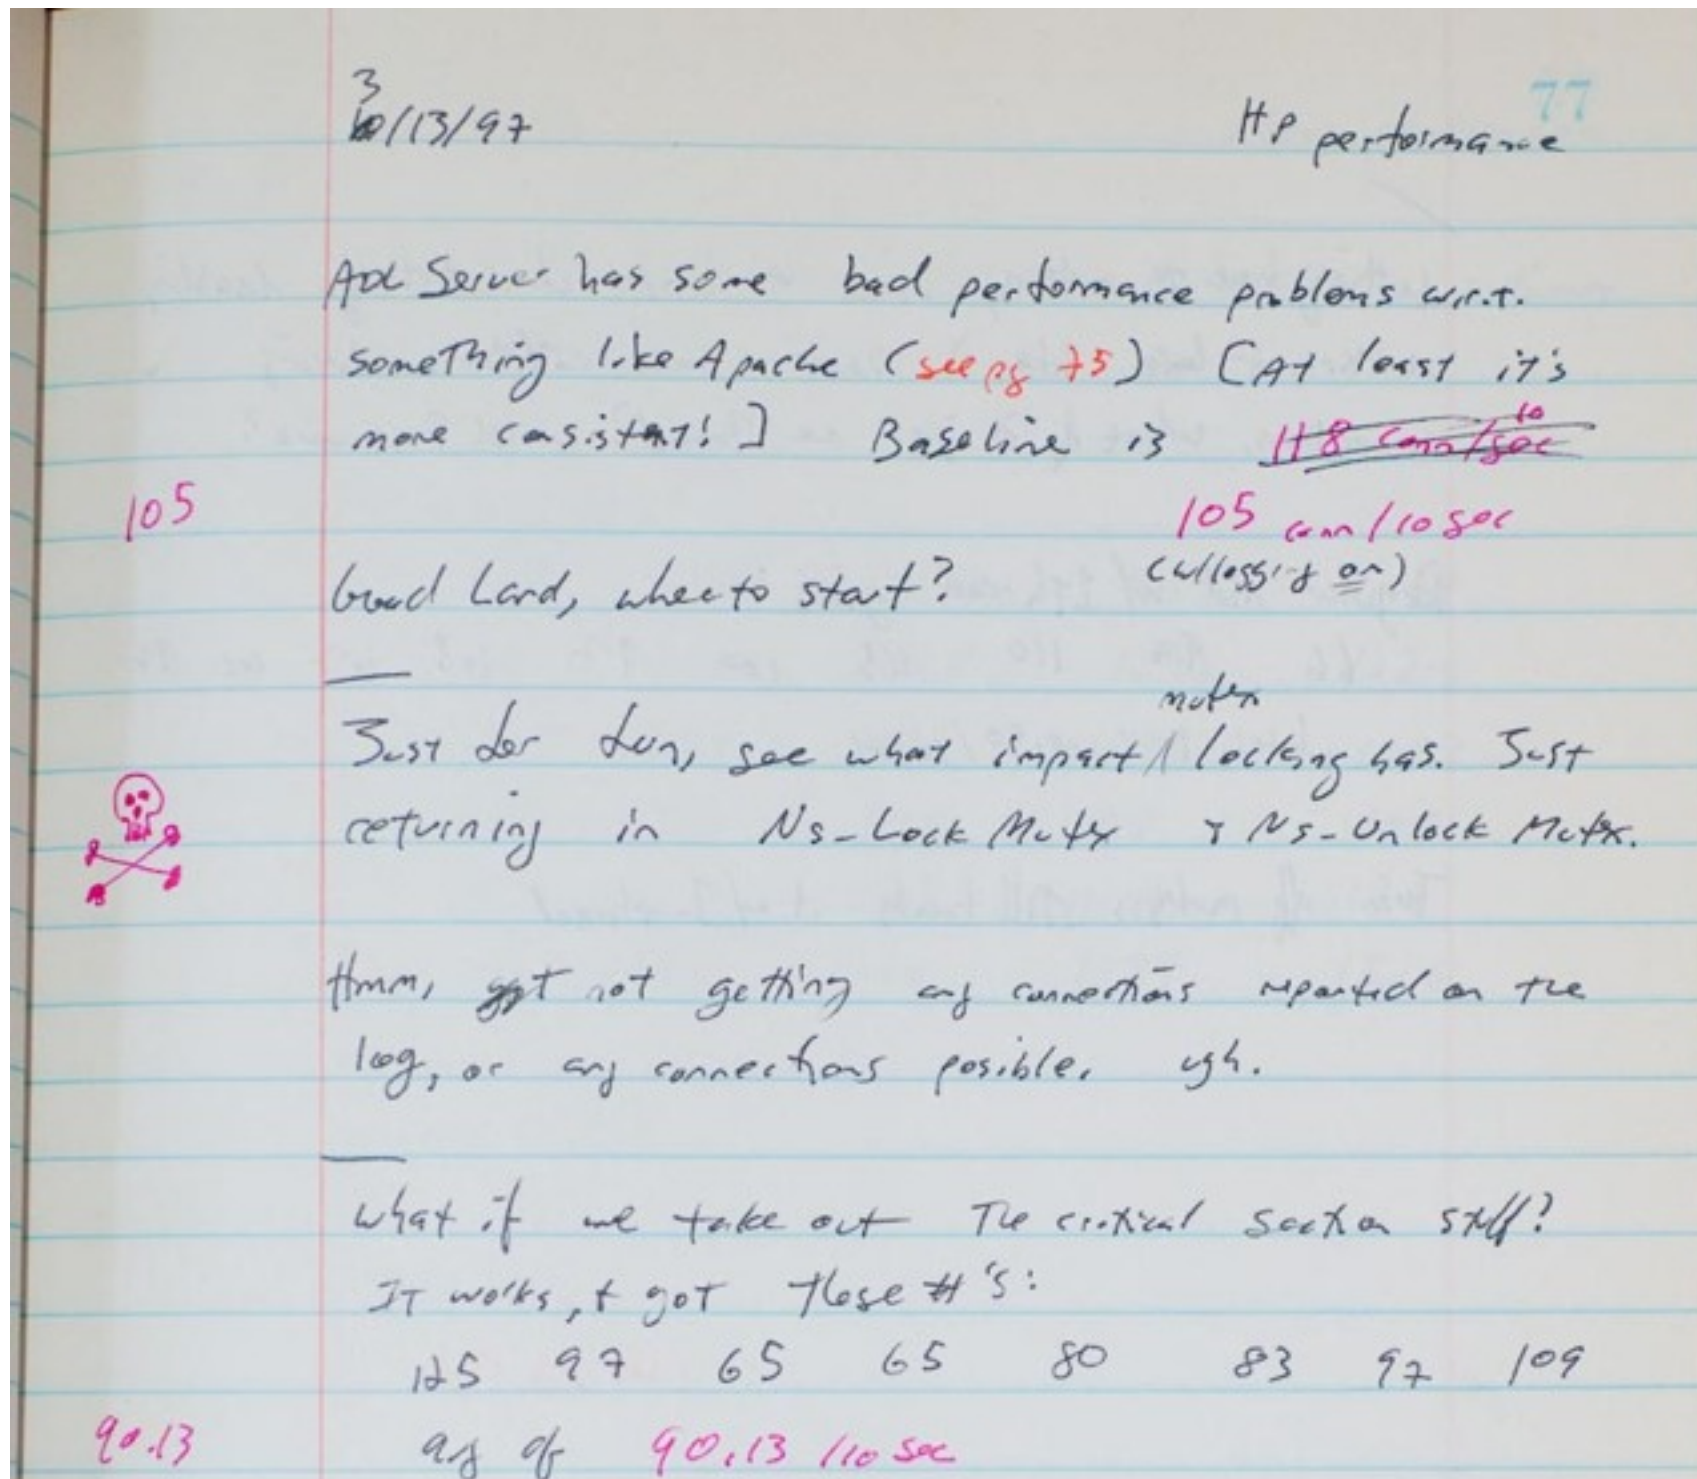 3
/13/97
HP performance
77
AOL Server has some bad performance problems w.r.t.
something like Apache (see pg 75) [At least it's
more consistent!] Baseline is 118 conn/10 sec
105
105 conn/10 sec
Good Lord, where to start? (w/logging on)
mutex
Just for fun, see what impact ∧ locking has. Just
returning in Ns-Lock Mutex + Ns-Unlock Mutex.
Hmm, not getting any connections reported on the
log, or any connections posible. ugh.
What if we take out the critical section stuff?
It works, + got these #'s:
125 97 65 65 80 83 97 109
90.13
avg of 90.13 /10 sec